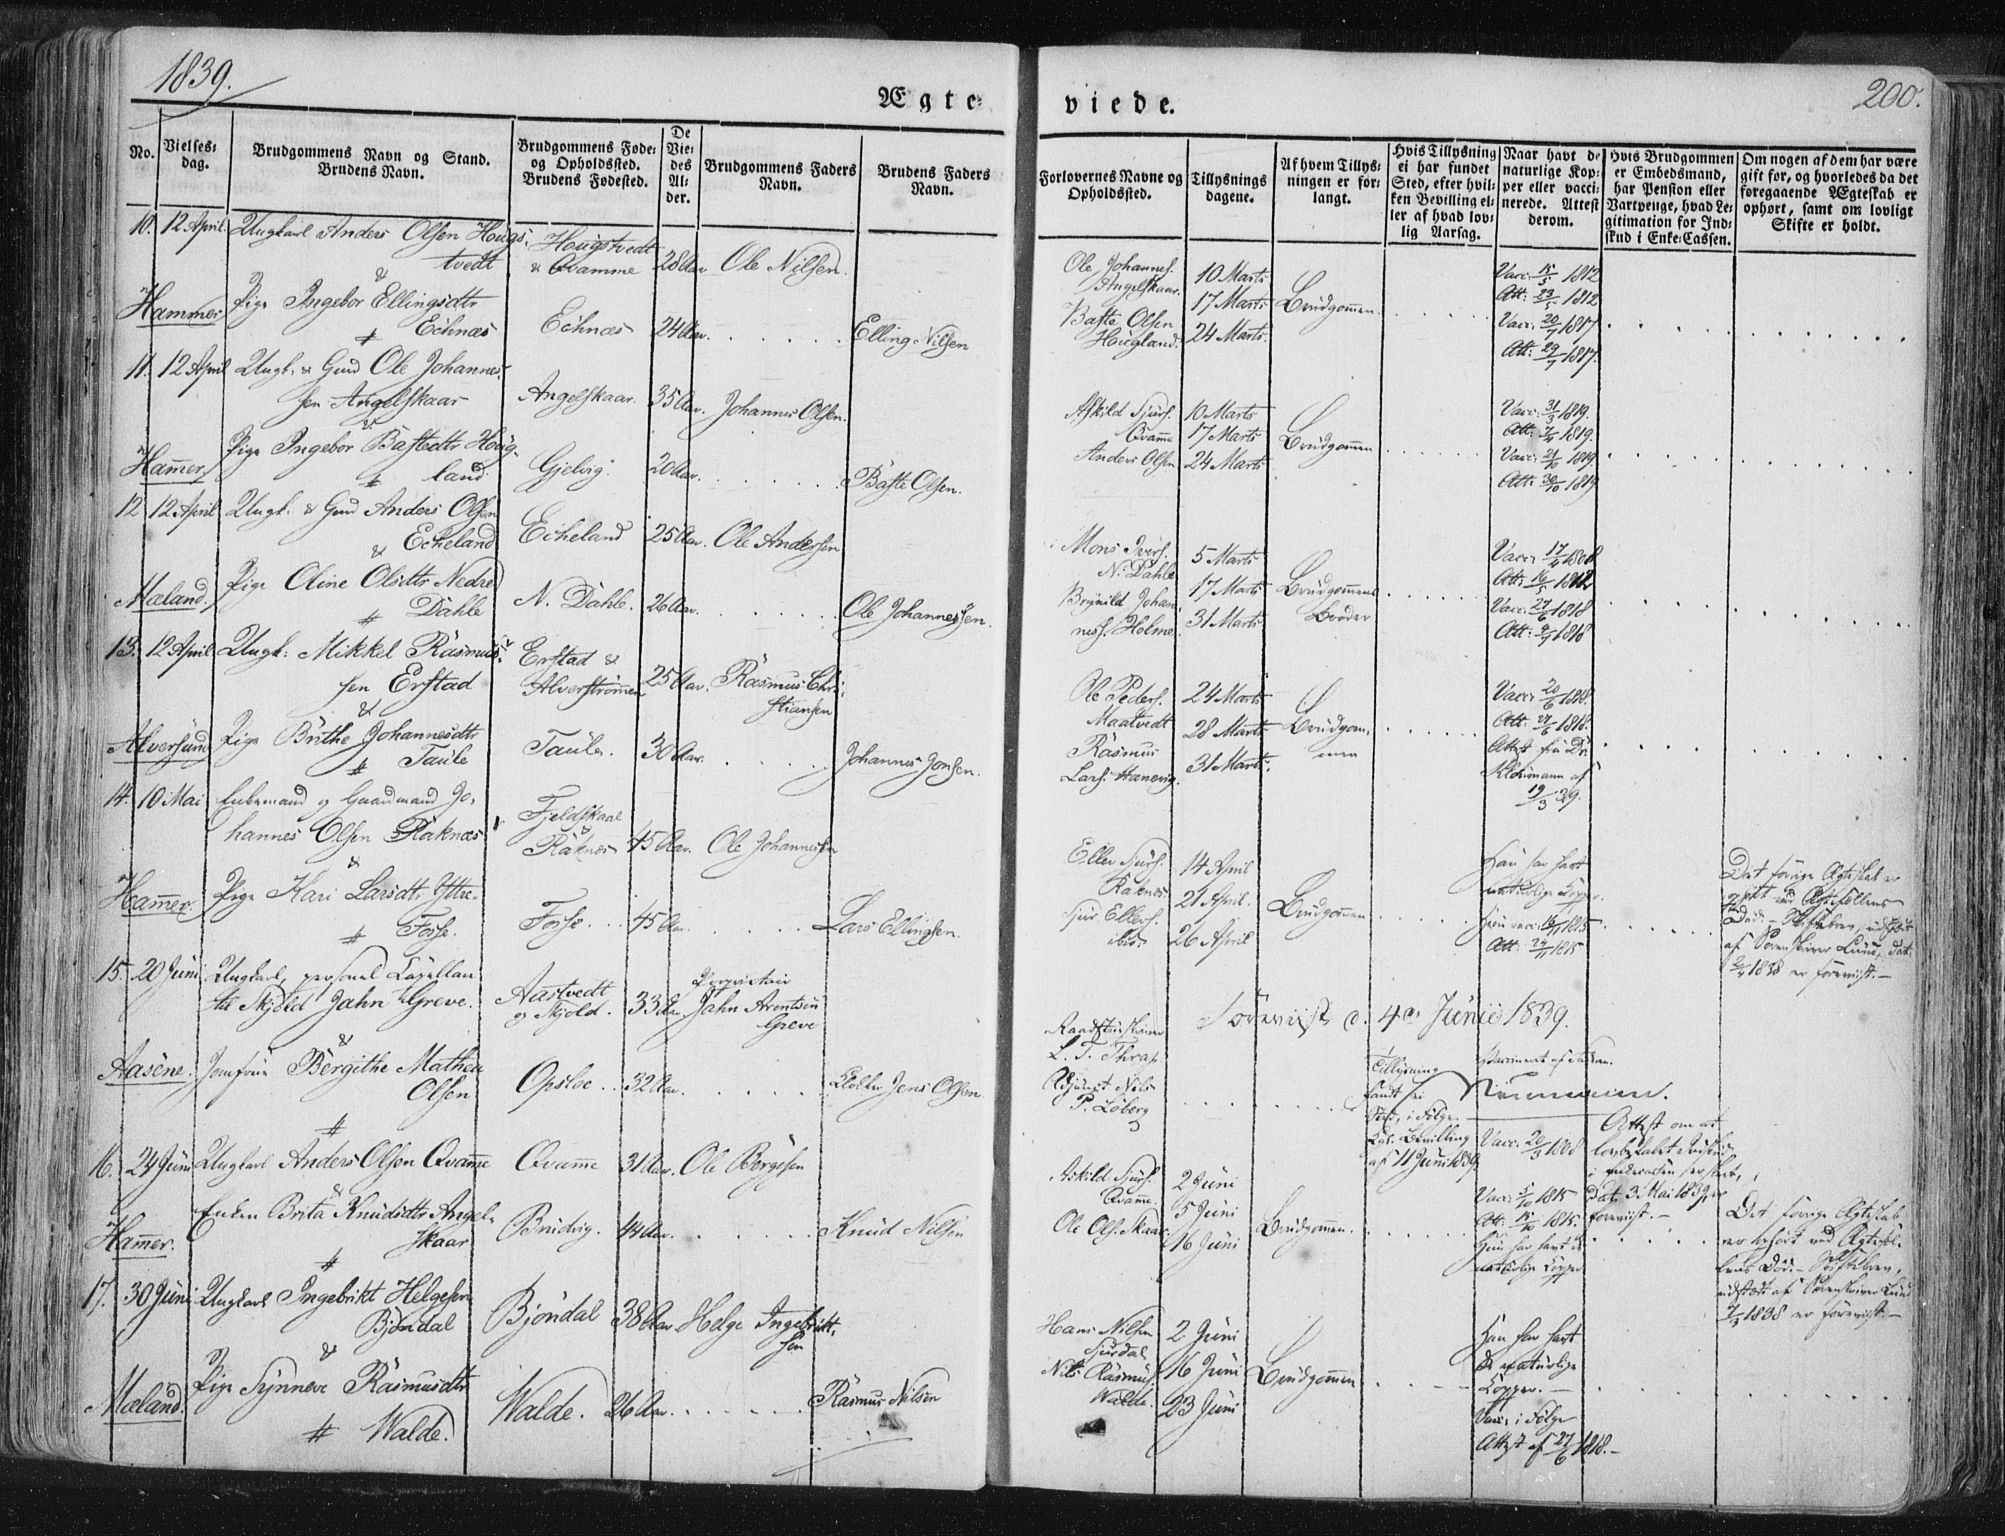 1839.
200.
Ægte-
viede.
No.
Vielses-
dag.
Brudgommens Navn og Stand.
Brudens Navn.
Brudgommens Føde-
og Opholdssted.
Brudens Fødested.
De
Vie-
des
Al-
der.
Brudgommens Faders
Navn.
Brudens Faders
Navn.
Forlovernes Navne og
Opholdssted.
Tillysnings
dagene.
Af hvem Tillys-
ningen er for-
langt.
Hvis Tillysning
ei har fundet
Sted, efter hvil-
ken Bevilling el-
ler af hvad lov-
lig Aarsag.
Naar havt de
naturlige Kop-
per eller vacci-
nerede. Attest
derom.
Hvis Brudgommen
er Embedsmand,
har Pension eller
Vartpenge, hvad Le-
gitimation for Ind-
skud i Enke-Cassen.
Om nogen af dem har være
gift før, og hvorledes da det
foregaaende Ægteskab er
ophørt, samt om lovligt
Skifte er holdt.
10. 12 April. Ungkarl Anders Olsen Hougs-
tvedt
&
Hammer Pige Ingebor Ellingsdtr
Echnæs
Hougstvedt
& Qvamme
28 Aar. Ole Nilsen.
Echnæs 24 Aar. Elling Nilsen
Ole Johannes.
Angelskaar.
Baste Olsen
Hougland.
10 Marts
17 Marts
24 Marts.
Brudgommen.
Vacc: 15/5 1812
Att: 23/5 1812
Vacc: 20/7 1817.
Att: 29/7 1817.
11. 12 April Ungk: & Gmd Ole Johannes-
sen Angelskaar
&
Hammer Pige Ingebor Bastedtr Houg-
land
Angelskaar 35 Aar. Johannes Olsen.
Gjelvig 20 Aar. Baste Olsen.
Askild Sjurs.
Qvamme
Anders Olsen
10 Marts
17 Marts
24 Marts
Brudgommen
Vacc: 31/3 1819.
Att: 7/4 1819.
Vacc: 21/10 1819.
Att: 30/10 1819
12. 12 April Ungk: & Gmd Anders Olsen
& Echeland
Mæland. Pige Oline Olsdtr Nedre
Dahle
Echeland 25 Aar. Ole Andersen
N. Dahle. 26 Aar. Ole Johannessen.
Mons Ivers.
N. Dahle
Brynild Johan-
ness. Holme
5 Marts
17 Marts
31 Marts
Brudgommens
Broder
13. 12 April Ungk: Mikkel Rasmus-
sen Erstad
&
Alversund Pige Brithe Johannesdtr
Taule
Erstad &
Alverstrømmen
25 Aar. Rasmus Chri-
stiansen
Taule. 30 Aar. Johannes Jonsen.
Ole Peders.
Maatvedt
Rasmus
Lars. Hanevig.
24 Marts
28 Marts
31 Marts.
Brudgom-
men
Vacc: 20/6 1818.
Att: 27/6 1818.
Attest fra Dr
af
19/3 39.
14. 10 Mai Enkemand og Gaardmand Jo-
hannes Olsen Raknæs
&
Hammer. Pige Kari Larsdtr Yttre
Fosse.
Fjeldskaal
&
Raknæs 45 Aar. Ole Johannessen
Fosse. 45 Aar. Lars Ellingsen.
Eller Sjurs.
Raknæs
Sjur Ellers.
ibid.
14 April
21 April.
26 April
Brudgommen
Han har havt
naturlige Kopper
Hun vacc: 16/11 1815
Att: 24/11 1815
Det forrige Ægteskab er
ophørt ved Ægtefællens
Død. – Skiftebrev, udstædt
af Sorenskriver Lund, dat:
2/4 1838 er foreviist. –
15. 20 Juni Ungkarl, personel Capellan
til Skjold Jahn Greve.
&
Aasene. Jomfrue Bergithe Mathea
Olsen
Aastvedt
og Skjold.
33 Aar
Proprietair
Jahn Arentsen
Greve
Opsloe 32 Aar. Jens Olsen
Raadstueskriver
L. T. Thrap
Adjunct Nils
P. Løberg
Foreviist d. 4de Junii 1839.
Tillysning
fandt ei
Sted, i Følge
Kgl. Bevilling
af 11 Juni 1839
Neumann.
Vacc: 20/3 1808
Attest om at
Dat: 3 Mai 1839, er
foreviist. –
16. 24 Juni Ungkarl Anders Olsen Qvamme
&
Enken Brita Knudsdtr Angel-
Hammer. skaar
Qvamme 31 Aar. Ole Børgesen
Brudvig. 44 Aar. Knud Nilsen
Askild Sjurs.
Qvamme.
Ole Ols. Skaar
2 Juni
5 Juni
16 Juni
Brudgommen.
Vacc: 5/10 1815
Att: 15/10 1815.
Hun har havt de
naturlige Kopper
Det forrige Ægteskab
er ophørt ved Ægtefæl-
lens Død. – Skiftebrev,
udstædt af Sorenskriver Lund
1838 er foreviist. –
17. 30 Juni Ungkarl Ingebrikt Helgesen
Bjøndal
&
Mæland. Pige Synneve Rasmusdtr
Walde.
Bjøndal 38 Aar Helge Ingebrikt-
sen
Walde. 26 Aar. Rasmus Nilsen
Hans Nilsen
Sjurdal
Nils Rasmus.
Walde.
2 Juni
16 Juni
23 Juni
Brudgommen
Han har havt
de naturlige
Kopper. –
Vacc: i Følge
Attest af 27/6 1818. –